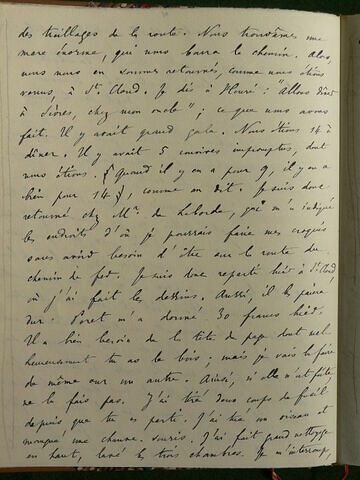 des treillages de la route. Nous trouvâmes une
mare énorme, qui nous barra le chemin. Alors,
nous nous en sommes retournés, comme nous étions
venus, à St. Cloud. Je dis à Heuré: "Allons dîner
à Sèvres, chez mon oncle"; ce que nous avons
fait. Il y avait grand gala. Nous étions 14 à
dîner. Il y avait 5 convives impromptus, dont
nous étions. (Quand il y en a pour 9, il y en a
bien pour 14), comme on dit. Je suis donc
retourné chez Mr. de Laborde, qui m'a indiqué
les endroits d'où je pourrais faire mes croquis
sans avoir besoin d'être sur la route du
chemin de fer. Je suis donc reparti hier à St. Cloud,
où j'ai fait les dessins. Aussi, il les paiera
dur. Poret m'a donné 30 francs hier.
Il a bien besoin de la tête de page dont mal-
heureusement tu as le bois; mais je vais le faire
de même sur un autre. Ainsi, si elle n'est faite,
ne la fais pas. J'ai tiré deux coups de fusil
depuis que tu es parti. J'ai tué un oiseau et
manqué une chauve-souris. J'ai fait grand nettoyage
en haut, lavé les trois chambres. Je m'interromps,